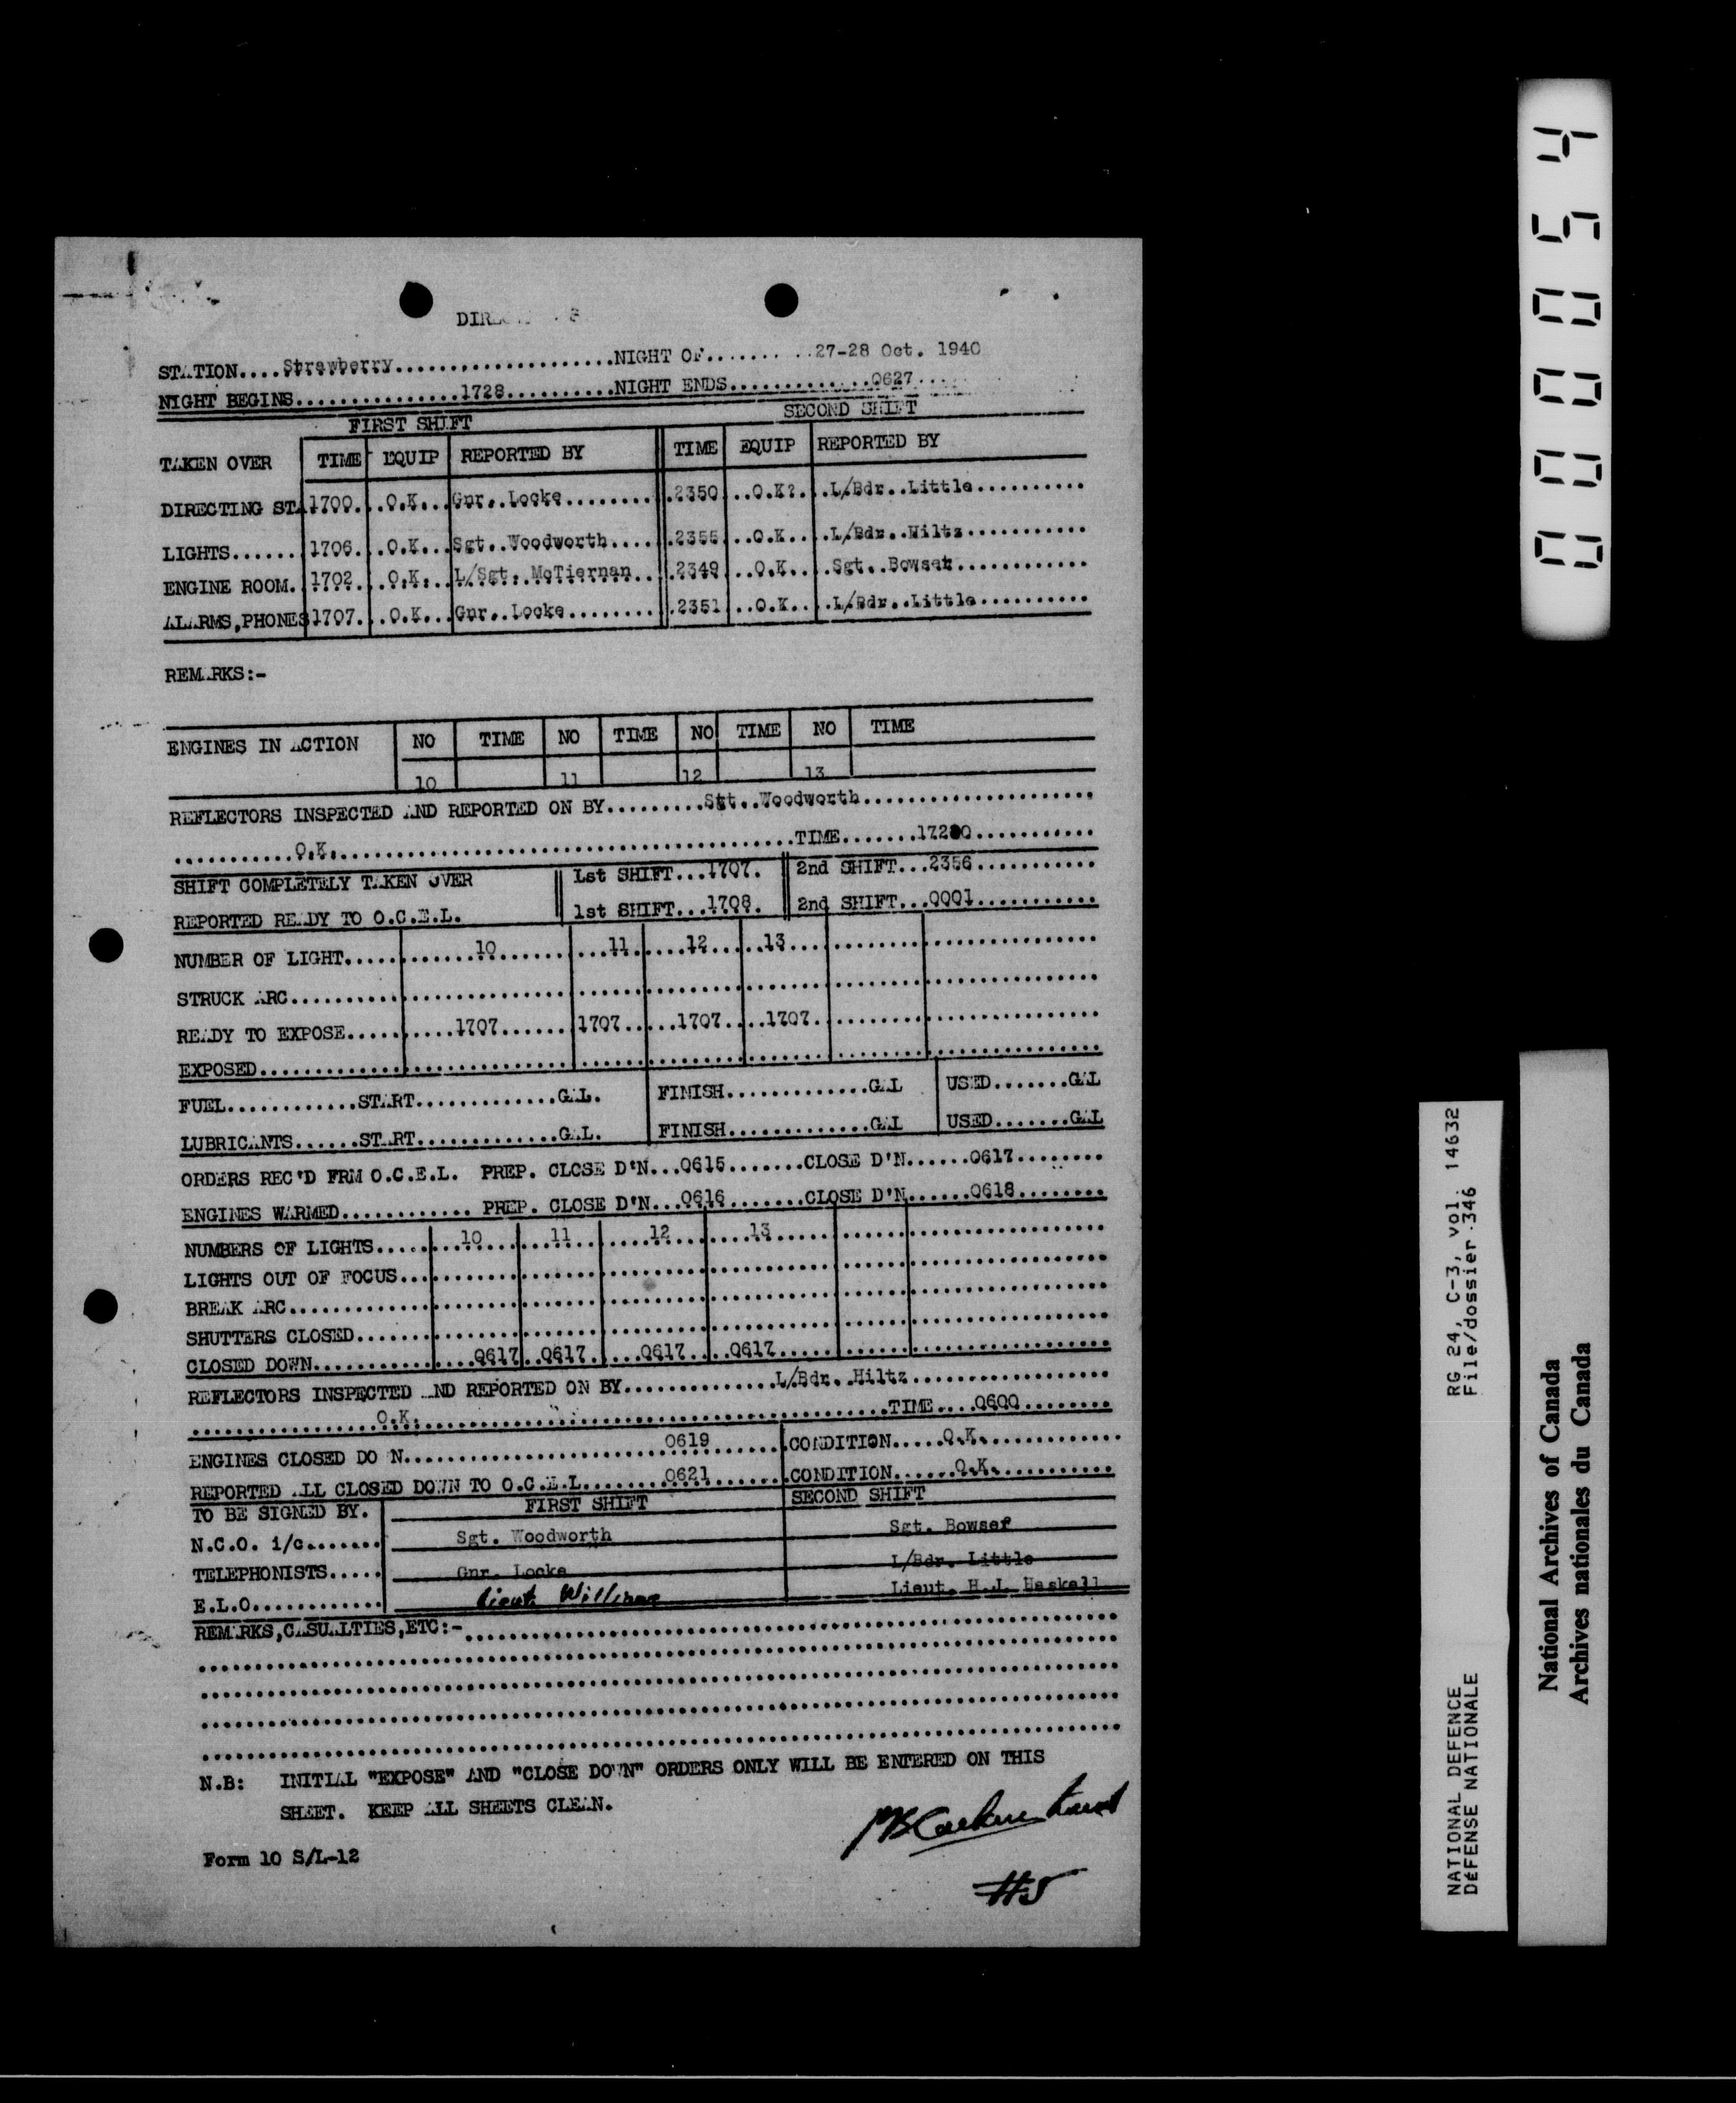 STATION....Strawberry....................NIGHT OF..........27-28 Oct. 1940
NIGHT BEGINS................1728..........NIGHT ENDS.............0627....
FIRST SHIFT SECOND SHIFT
TAKEN OVER TIME EQUIP REPORTED BY TIME EQUIP REPORTED BY
DIRECTING STA 1700...O.K...Gnr..Locke.........2350...O.K?...L/Bdr..Little..........
LIGHTS......1706...O.K...Sgt..Woodworth.....2355...O.K...L/Bdr..Hiltz...........
ENGINE ROOM. 1702...O.K...L/Sgt. McTiernan...2349...O.K...Sgt..Bowser............
ALARMS,PHONES 1707...O.K...Gnr..Locke.........2351...O.K...L/Bdr..Little..........
REMARKS:-
ENGINES IN ACTION NO TIME NO TIME NO TIME NO TIME
10 11 12 13
REFLECTORS INSPECTED AND REPORTED ON BY.........Sgt..Woodworth.....................
...........O.K..........................................TIME.......17280...........
SHIFT COMPLETELY TAKEN OVER 1st SHIFT...1707. 2nd SHIFT...2356...........
REPORTED READY TO O.C.E.L. 1st SHIFT...1708. 2nd SHIFT...0001...........
NUMBER OF LIGHT............10...........11......12.....13............................
STRUCK ARC.......................................................................
READY TO EXPOSE..........1707.......1707.....1707....1707..........................
EXPOSED..........................................................................
FUEL............START.............GAL. FINISH.............GAL USED.......GAL
LUBRICANTS......START.............GAL. FINISH.............GAL USED.......GAL
ORDERS REC'D FRM O.C.E.L. PREP. CLOSE D'N...0615.......CLOSE D'N......0617........
ENGINES WARMED............ PREP. CLOSE D'N...0616.......CLOSE D'N......0618........
NUMBERS OF LIGHTS........10.......11........12........13..............................
LIGHTS OUT OF FOCUS..............................................................
BREAK ARC........................................................................
SHUTTERS CLOSED..................................................................
CLOSED DOWN..............0617..0617.....0617....0617..............................
REFLECTORS INSPECTED AND REPORTED ON BY..............L/Bdr..Hiltz..................
.................O.K...........................................TIME....0600........
ENGINES CLOSED DO N........................0619.......CONDITION.....O.K............
REPORTED ALL CLOSED DOWN TO O.C.E.L........0621.......CONDITION......O.K...........
TO BE SIGNED BY. FIRST SHIFT SECOND SHIFT
N.C.O. i/c....... Sgt. Woodworth Sgt. Bowser
TELEPHONISTS..... Gnr. Locke L/Bdr. Little
E.L.O............ Lieut. Lieut. H.I. Haskell
REMARKS,CASUALTIES,ETC:-.........................................................
N.B: INITIAL "EXPOSE" AND "CLOSE DOWN" ORDERS ONLY WILL BE ENTERED ON THIS
SHEET. KEEP ALL SHEETS CLEAN.
Form 10 S/L-12
#5
000054
RG 24, C-3, vol. 14632
File/dossier 346
NATIONAL DEFENCE
DÉFENSE NATIONALE
National Archives of Canada
Archives nationales du Canada